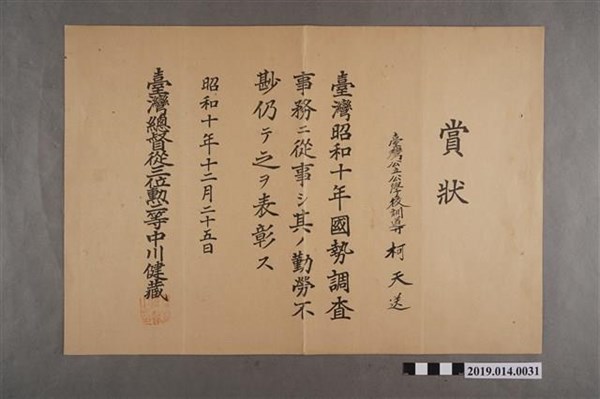 賞狀
臺灣公立公學校訓導 柯天送
臺灣昭和十年國勢調査
事務ニ從事シ其ノ勤勞不
尠仍テ之ヲ表彰ス
昭和十年十二月二十五日
臺灣總督從三位勲一等中川健藏
2019.014.0031